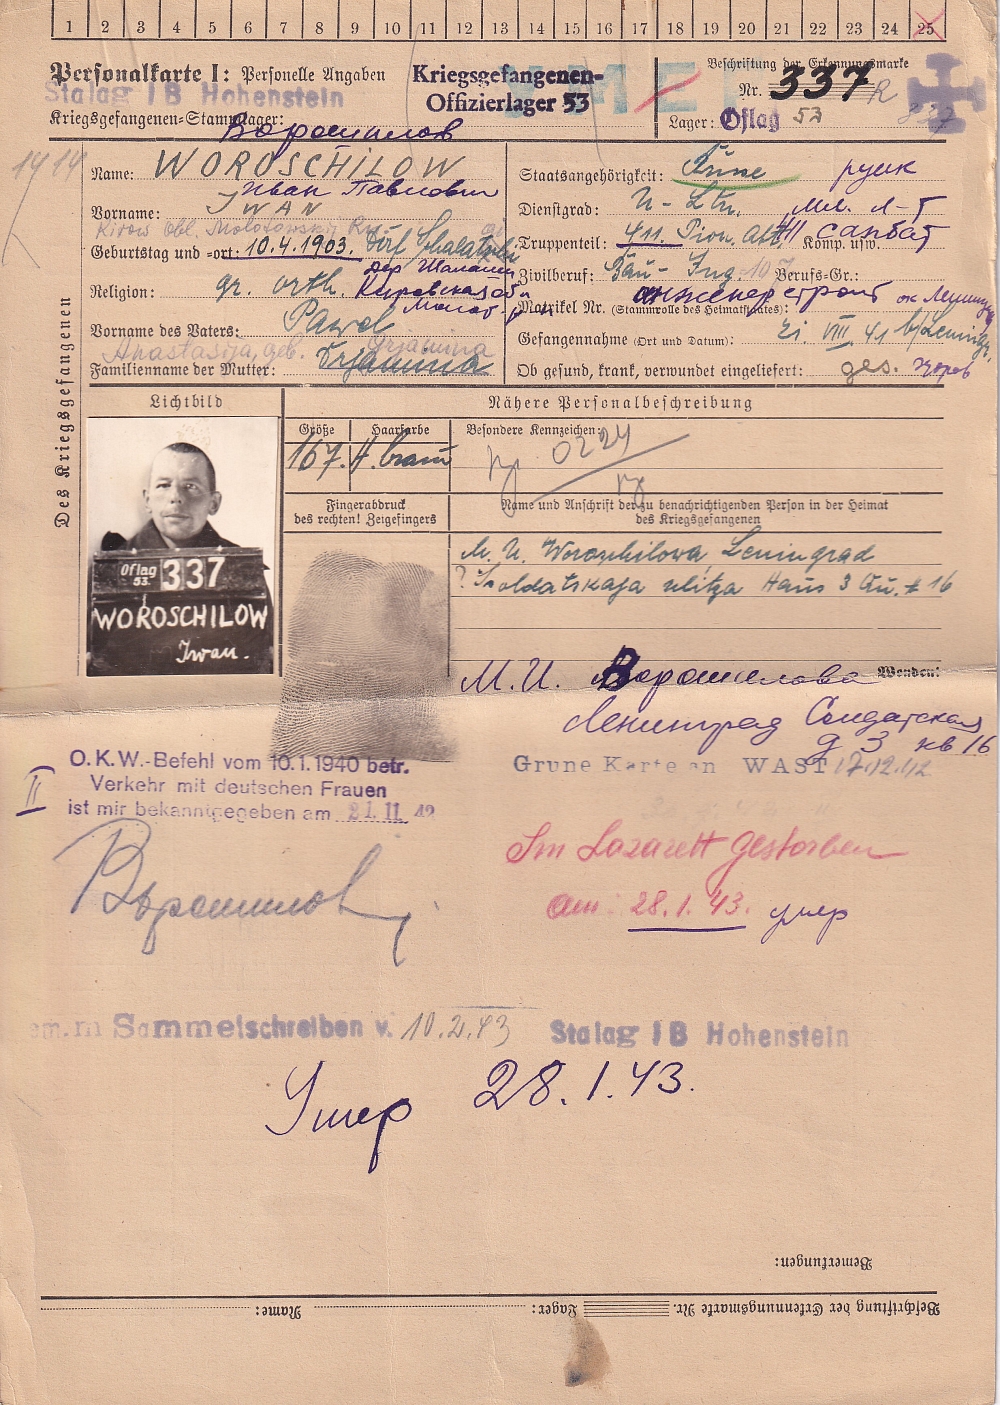 1 2 3 4 5 6 7 8 9 10 11 12 13 14 15 16 17 18 19 20 21 22 23 24 25
Personalkarte I: Personelle Angaben
Stalag I B Hohenstein
Kriegsgefangenen-Stammlager:
Kriegsgefangenen-
Offizierlager 53
Beschriftung der Erkennungsmarke
Nr. 337 R
Lager: Oflag 53
337
Ворошилов
Des Kriegsgefangenen
Name: WOROSCHILOW
Иван Павлович
Vorname: IWAN
Kirow Obl. Molotowsky
Geburtstag und =ort: 10.4.1903. Dorf
дер Шалагин
Religion: gr. orth. Кировская
Vorname des Vaters: Pawel
Anastasija, geb.
Familienname der Mutter:
Staatsangehörigkeit: Russe русск
Dienstgrad: U-Ltn. мл. л-т
Truppenteil: 411. Pion. Abt. Komp. usw. 411 санбат
Zivilberuf: Bau-Ing. Berufs-Gr.: 107
инженер строит
Matrikel Nr. (Stammrolle des Heimatstaates):
Gefangennahme (Ort und Datum): VIII. 41 b/Leningr.
Ob gesund, krank, verwundet eingeliefert: ges. здоров
Lichtbild
Oflag
53.
337
WOROSCHILOW
Iwan.
Nähere Personalbeschreibung
Größe Haarfarbe Besondere Kennzeichen:
167. H. braun
Fingerabdruck
des rechten! Zeigefingers
Name und Anschrift der zu benachrichtigenden Person in der Heimat
des Kriegsgefangenen
M. I. Woroschilowa, Leningrad
? Ssoldatskaja ulitza Haus 3 Qu. # 16
Wenden!
М. И. Ворошилова
Ленинград Солдатская
д 3 кв 16
II
O.K.W.-Befehl vom 10.1.1940 betr.
Verkehr mit deutschen Frauen
ist mir bekanntgegeben am 21. 11. 42
Grüne Karte an WAST 17.12.42
Ворошилов
Im Lazarett gestorben
am 28.1.43. умер
Sammelschreiben v. 10.2.43 Stalag I B Hohenstein
Умер 28.1.43.
Bemerkungen:
Beschriftung der Erkennungsmarke Nr. Lager: Name: